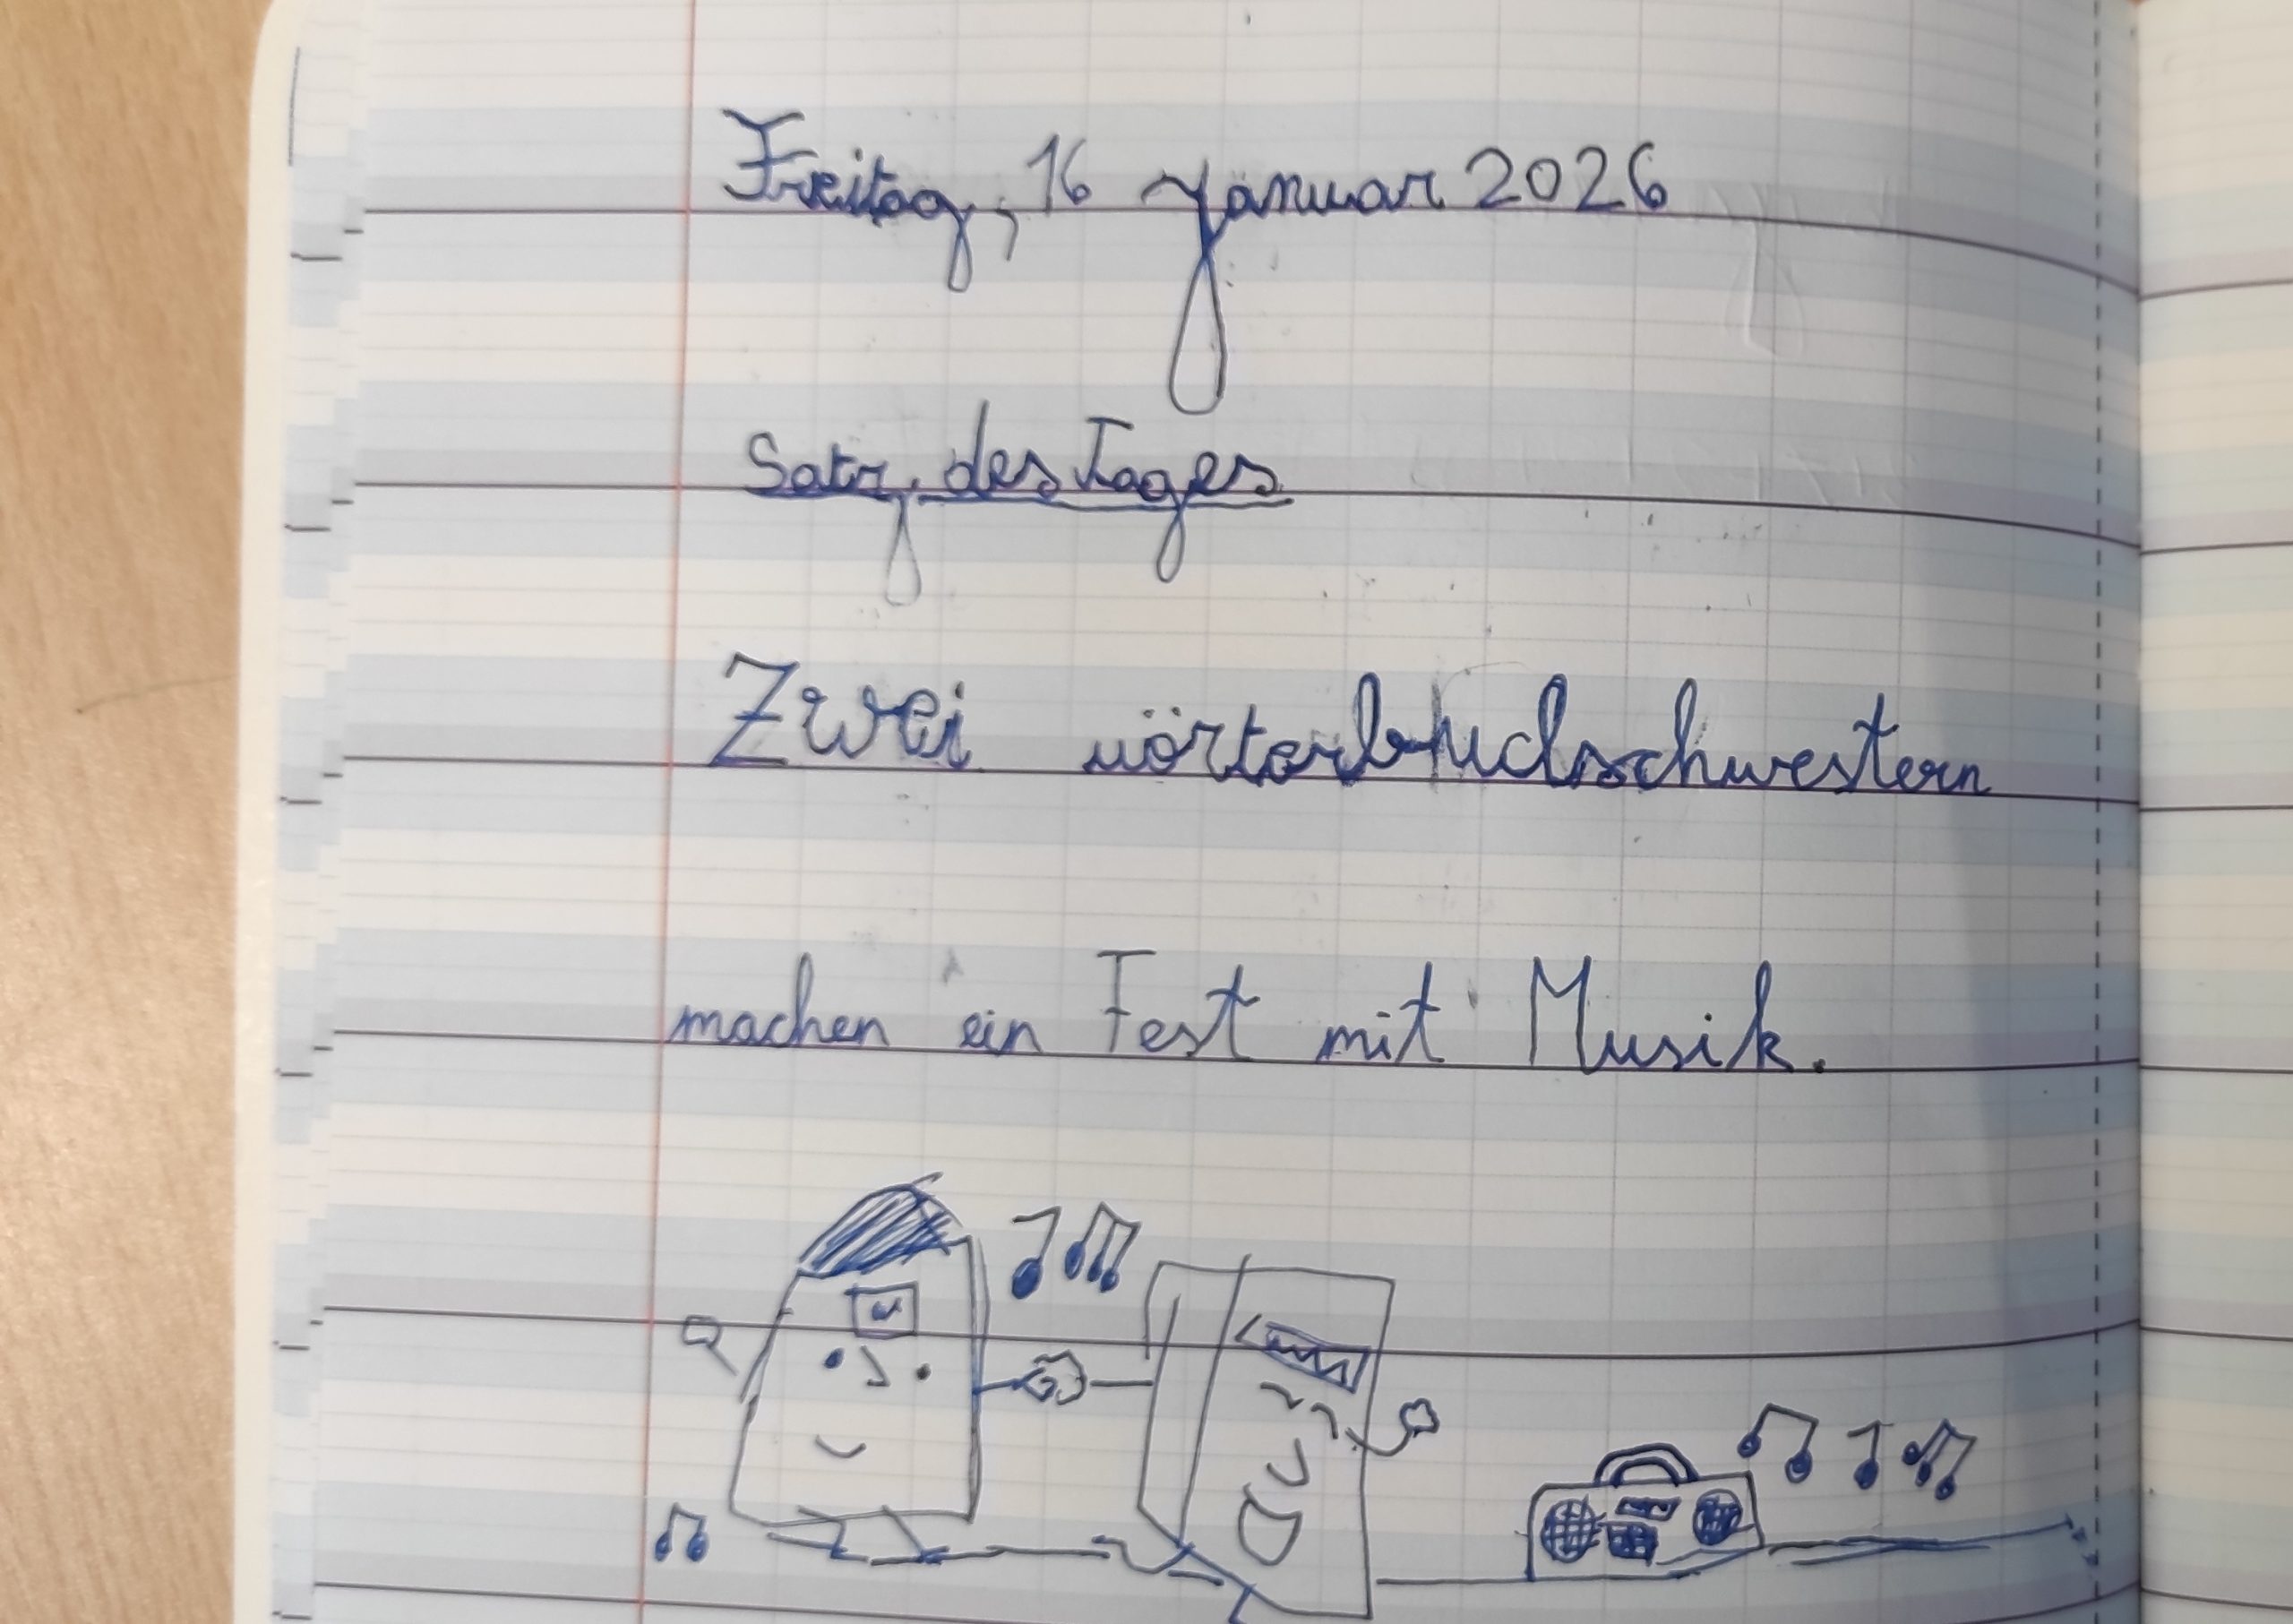 Freitag, 16 Januar 2026
Satz des Tages
Zwei wörterbuchschwestern
machen ein Fest mit Musik.
W